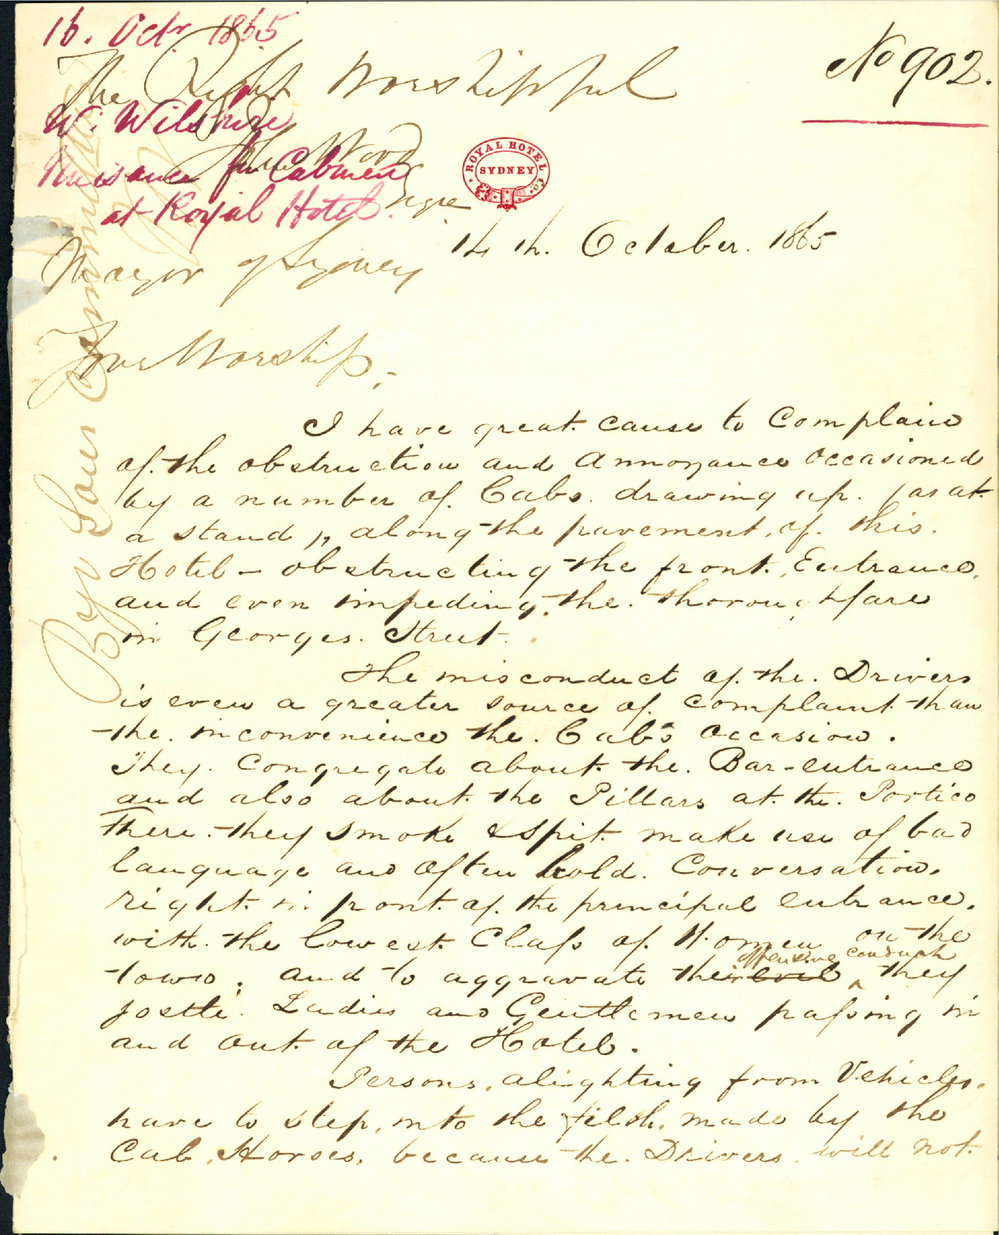 16. Octr 1865
No 902.
The Right Worshipful
W. Wilshire
John Wood
Nuisance fm Cabmen
Esqre
at Royal Hotel.
ROYAL HOTEL Co.
SYDNEY
14th. October. 1865
Mayor of Sydney
Your Worship,
I have great cause to Complain
of the obstruction and Annoyance Occasioned
by a number of Cabs. drawing up. (as at
a stand), along the pavement of this.
Hotel – obstructing the front. Entrance,
and even impeding. the. thoroughfare
in Georges. Street.
The misconduct of. the. Drivers
is even a greater source of. Complaint than
the. inconvenience the. Cab's Occasion.
They. Congregate about. the. Bar-entrance
and also about. the Pillars at the. Portico
There. they smoke & spit. make use of bad
language and Often hold. Conversation.
right. in front. of. the principal entrance.
with. the lowest Class of. Women on the
town; and to aggravate their evil offensive conduct they
jostle. Ladies and Gentlemen passing in
and Out. of the Hotel.
Persons, alighting from Vehicles.
have to step. into the filth. made by the
Cab. Horses. because the. Drivers will not.
Bye Laws